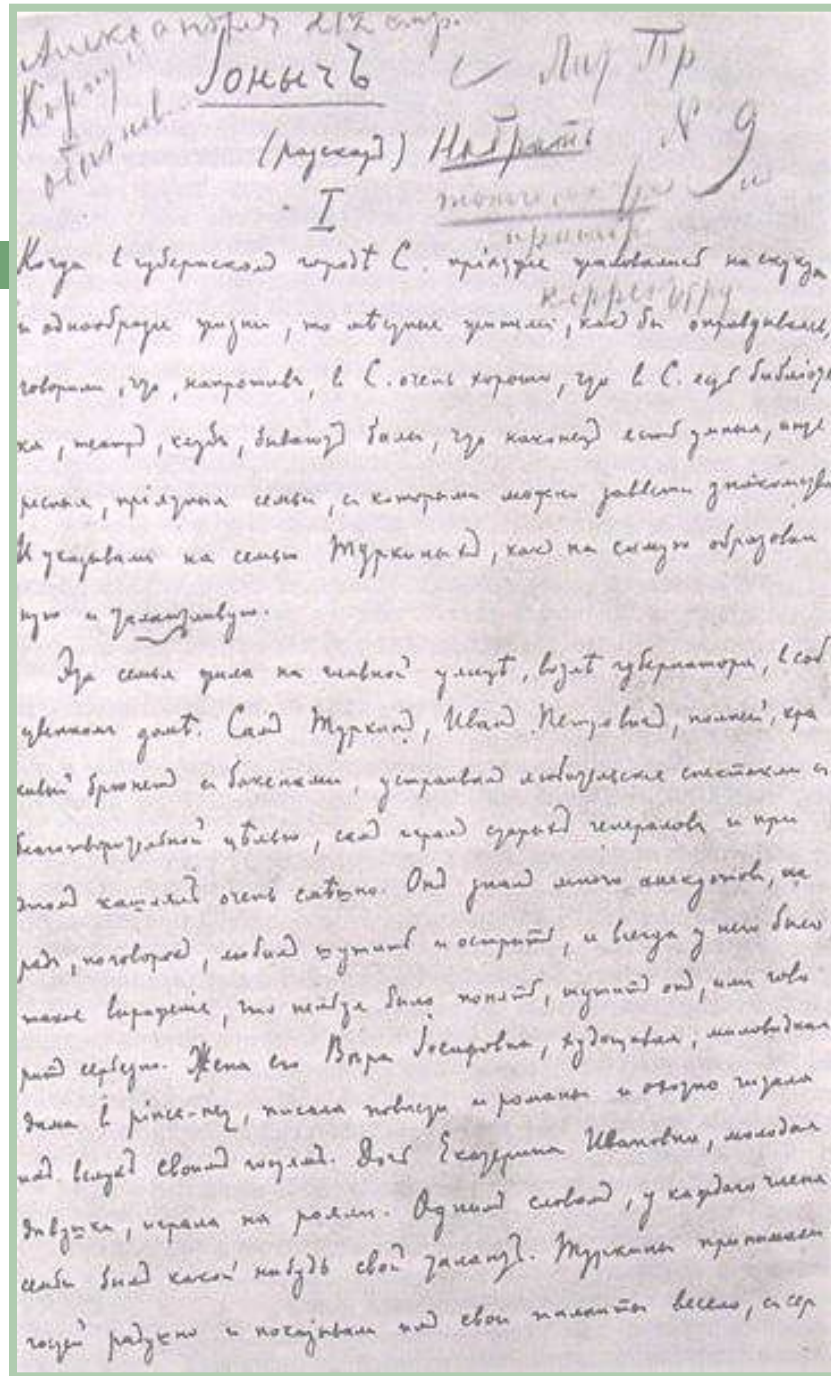 Іонычъ
(разсказъ) Набрать № 9
I
корректуру
Когда въ губернскомъ городѣ С. пріѣзжіе жаловались на скуку
и однообразіе жизни, то мѣстные жители, какъ бы оправдываясь,
говорили, что, напротивъ, въ С. очень хорошо, что въ С. есть библіоте
ка, театръ, клубъ, бываютъ балы, что наконецъ есть умныя, инте
ресныя, пріятныя семьи, съ которыми можно завести знакомства.
И указывали на семью Туркиныхъ, какъ на самую образован
ную и талантливую.
Эта семья жила на главной улицѣ, возлѣ губернатора, въ соб
ственномъ домѣ. Самъ Туркинъ, Иванъ Петровичъ, полный, кра
сивый брюнетъ съ бакенами, устраивалъ любительскіе спектакли съ
благотворительной цѣлью, самъ игралъ старыхъ генераловъ и при
этомъ кашлялъ очень смѣшно. Онъ зналъ много анекдотовъ, ша
радъ, поговорокъ, любилъ шутить и острить, и всегда у него было
такое выраженіе, что нельзя было понять, шутитъ онъ, или гово
ритъ серьезно. Жена его Вѣра Іосифовна, худощавая, миловидная
дама въ pince-nez, писала повѣсти и романы и охотно читала
ихъ вслухъ своимъ гостямъ. Дочь Екатерина Ивановна, молодая
дѣвушка, играла на рояли. Однимъ словомъ, у каждаго члена
семьи былъ какой нибудь свой талантъ. Туркины принимали
гостей радушно и показывали имъ свои таланты весело, съ сер